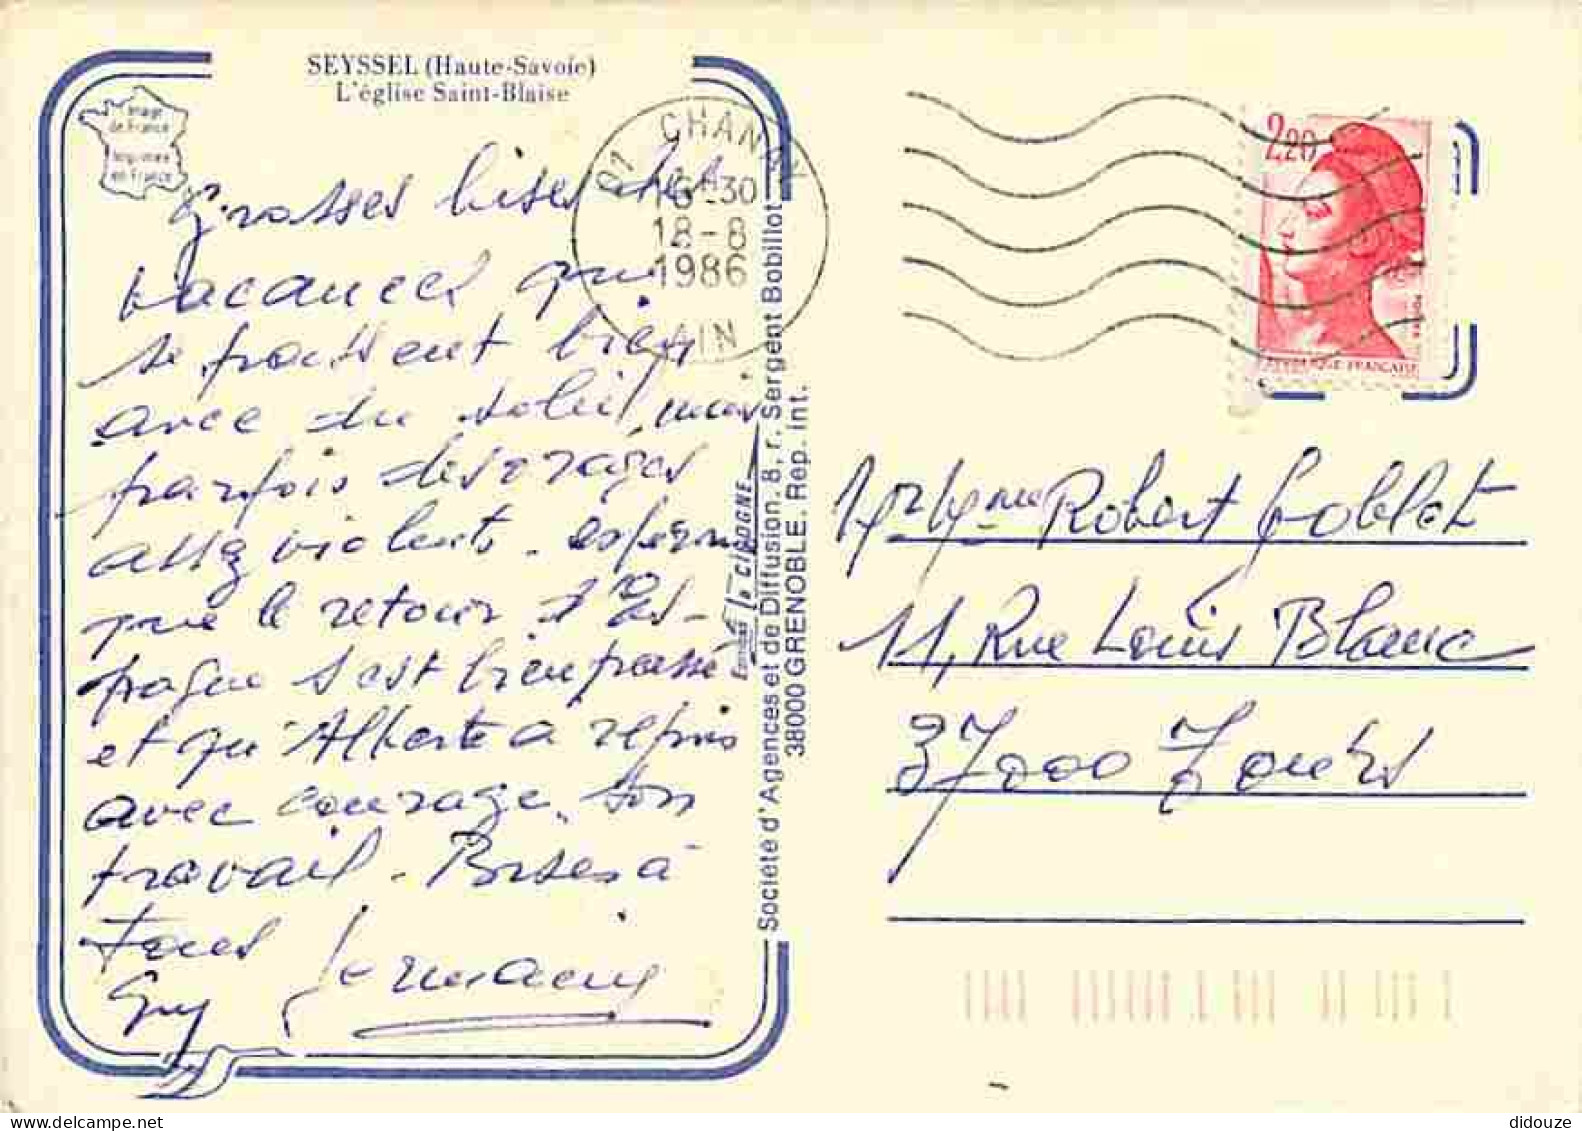 SEYSSEL (Haute-Savoie)
L'église Saint-Blaise
Image
de France
Imprimée
en France
Grosses bises des
vacances qui
se passent bien
avec du soleil, mais
parfois des orages
assez violents. espérons
que le retour d'Es-
pagne s'est bien passé
et qu'Alberte a repris
avec courage son
travail. Bises à
tous
Guy Germaine
01 CHANAY
16H30
18-8
1986
AIN
Editions la CIGOGNE
Société d'Agences et de Diffusion. 8, r. Sergent Bobillot
38000 GRENOBLE. Rep. int.
2,20
REPUBLIQUE FRANCAISE
POSTES
Mr Mme Robert Goblet
11, Rue Louis Blanc
37000 Tours
didouze